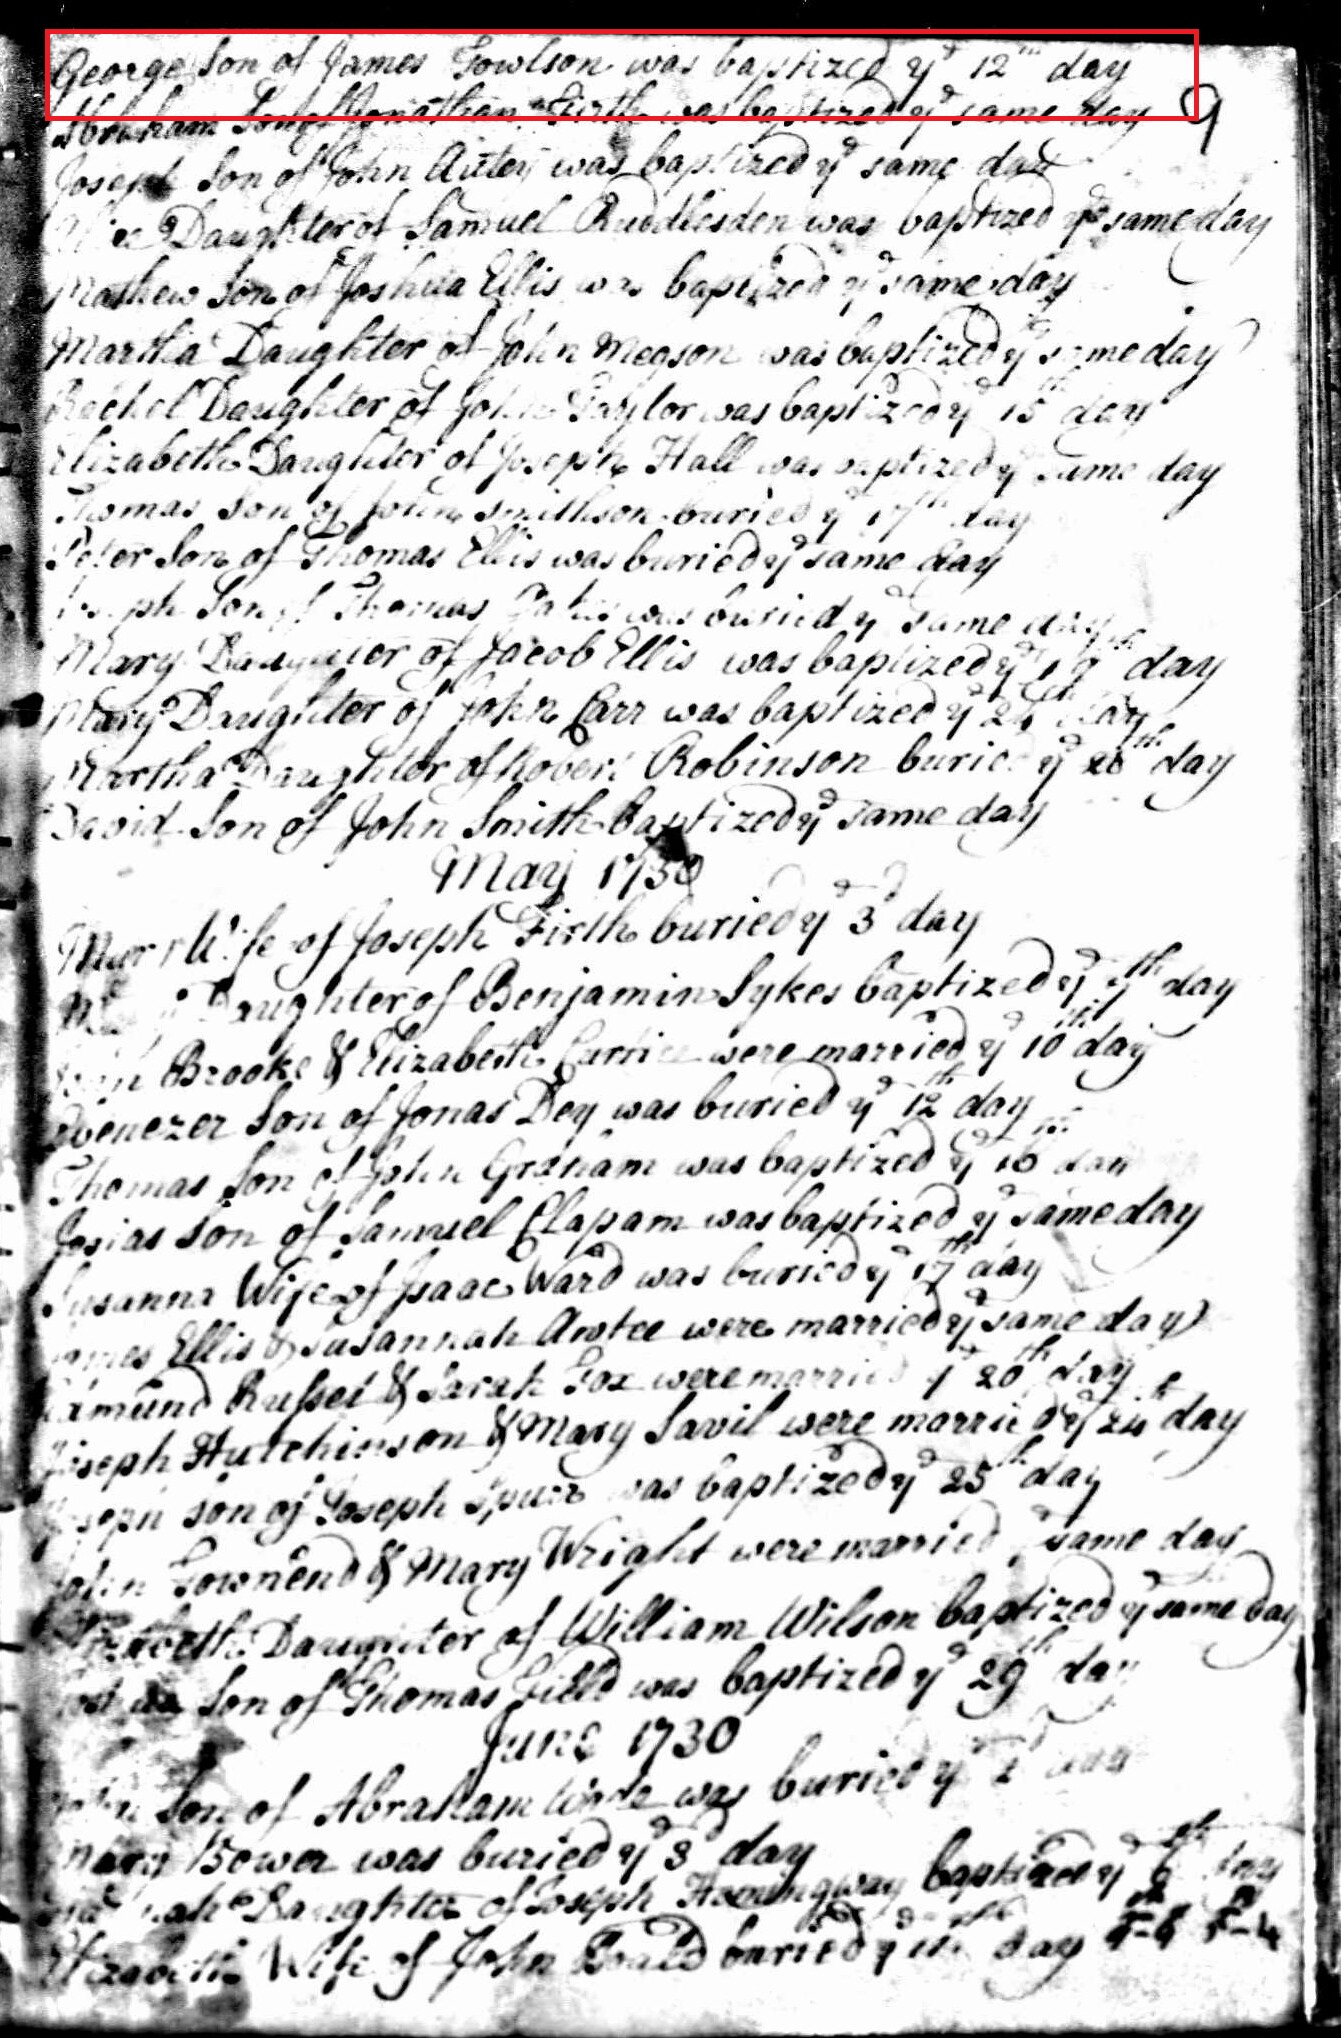 George Son of James Towlson was baptized yͤ 12ᵗʰ day
Abraham Son of Jonathan Firth was baptized yͤ same day 9
Joseph Son of John Autey was baptized yͤ same day
Daughter of Samuel Ruddlesden was baptized yͤ same day
Mathew Son of Joshua Ellis was baptized yͤ same day
Martha Daughter of John Megson was baptized yͤ same day
Rachel Daughter of John Taylor was baptized yͤ 15ᵗʰ day
Elizabeth Daughter of Joseph Hall was baptized yͤ same day
Thomas Son of John Smithson buried yͤ 17ᵗʰ day
Peter Son of Thomas Ellis was buried yͤ same day
Joseph Son of Thomas was buried yͤ same day
Mary Daughter of Jacob Ellis was baptized yͤ day
Mary Daughter of John Carr was baptized yͤ 24ᵗʰ day
Martha Daughter of Robert Robinson buried yͤ day
David Son of John Smith Baptized yͤ same day
May 1730
Mary Wife of Joseph Firth buried yͤ 3ᵈ day
Daughter of Benjamin Sykes baptized yͤ day
Brooke & Elizabeth were married yͤ 10ᵗʰ day
Ebenezer Son of Jonas Dey was buried yͤ 12ᵗʰ day
Thomas Son of John Graham was baptized yͤ day
Josias Son of Samuel Clapam was baptized yͤ same day
Susanna Wife of Isaac Ward was buried yͤ 17ᵗʰ day
James Ellis & Susannah Awtee were married yͤ same day
Edmund Russel & Sarah Fox were married yͤ 20ᵗʰ day
Joseph Hutchinson & Mary Savil were married yͤ 24ᵗʰ day
Joseph son of Joseph Spurr was baptized yͤ 25ᵗʰ day
John Townend & Mary Wright were married same day
Elizabeth Daughter of William Wilson baptized yͤ same day
Son of Thomas Field was baptized yͤ 29ᵗʰ day
June 1730
John Son of Abraham was buried yͤ day
Mary Bower was buried yͤ 3ᵈ day
Daughter of Joseph Hemingway baptized yͤ 6ᵗʰ day
Elizabeth Wife of John buried yͤ day